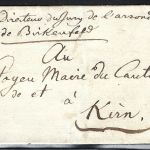 Directeur du Jury de l'arrond
de Birkenfeld
Au
Maire du Cant
de et à
Kirn.